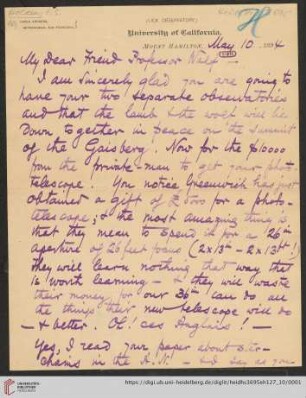 LICK OBSERVATORY
University of California,
MOUNT HAMILTON, May 10, 1894
My Dear Friend Professor Wolf —
I am sincerely glad you are going to
have your two separate observatories
and that the lamb & the wolf will lie
down together in peace on the summit
of the Gaisberg! Now for the $10000
from the private-man to get your photo-
telescope. You notice Greenwich has just
obtained a gift of for a photo-
telescope; & the most amazing thing is,
that they mean to spend it for a 26 in
aperture of 26 feet focus (2x13 in - 2x13 ft!)
they will learn nothing that way that
is worth learning — & they will waste
their money, for our 36 in can do all
the things their new telescope will do
— & better. Oh! ces Anglais! —
Yes, I read your paper about
chains in the A.N. — and say as you
https://digi.ub.uni-heidelberg.de/diglit/heidhs3695eh127_10/0001